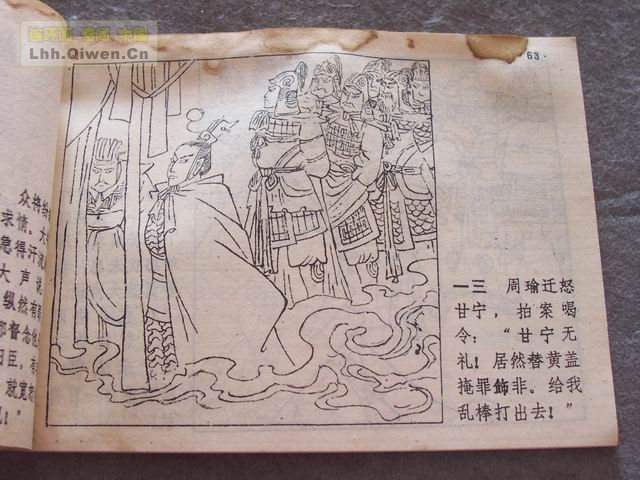 连环画.奇闻.中国
Lhh.Qiwen.Cn
63·
众将纷
求情，大
急得汗流
大声说
纵然有
都督念他
旧臣，有
就宽
！”
一三 周瑜迁怒
甘宁，拍案喝
令：“甘宁无
礼！居然替黄盖
掩罪飾非。给我
乱棒打出去！”